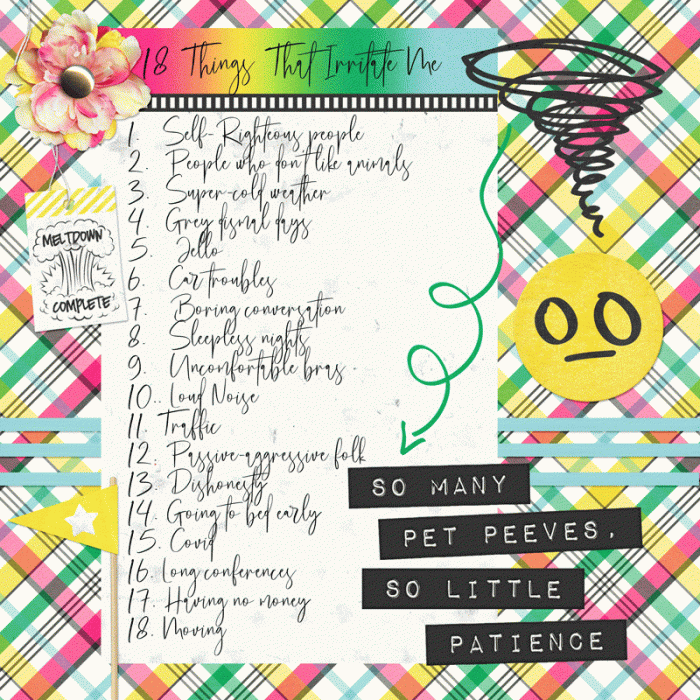 18 Things That Irritate Me
1. Self-Righteous people
2. People who don't like animals
3. Super-cold weather
4. Grey dismal days
5. Jello
6. Car troubles
7. Boring conversation
8. Sleepless nights
9. Unconfortable bras
10.. Loud Noise
11. Traffic
12. Passive-aggressive folk
13. Dishonesty
14. Going to bed early
15. Covid
16. Long conferences
17. Having no money
18. Moving
MELTDOWN
COMPLETE
SO MANY
PET PEEVES,
SO LITTLE
PATIENCE